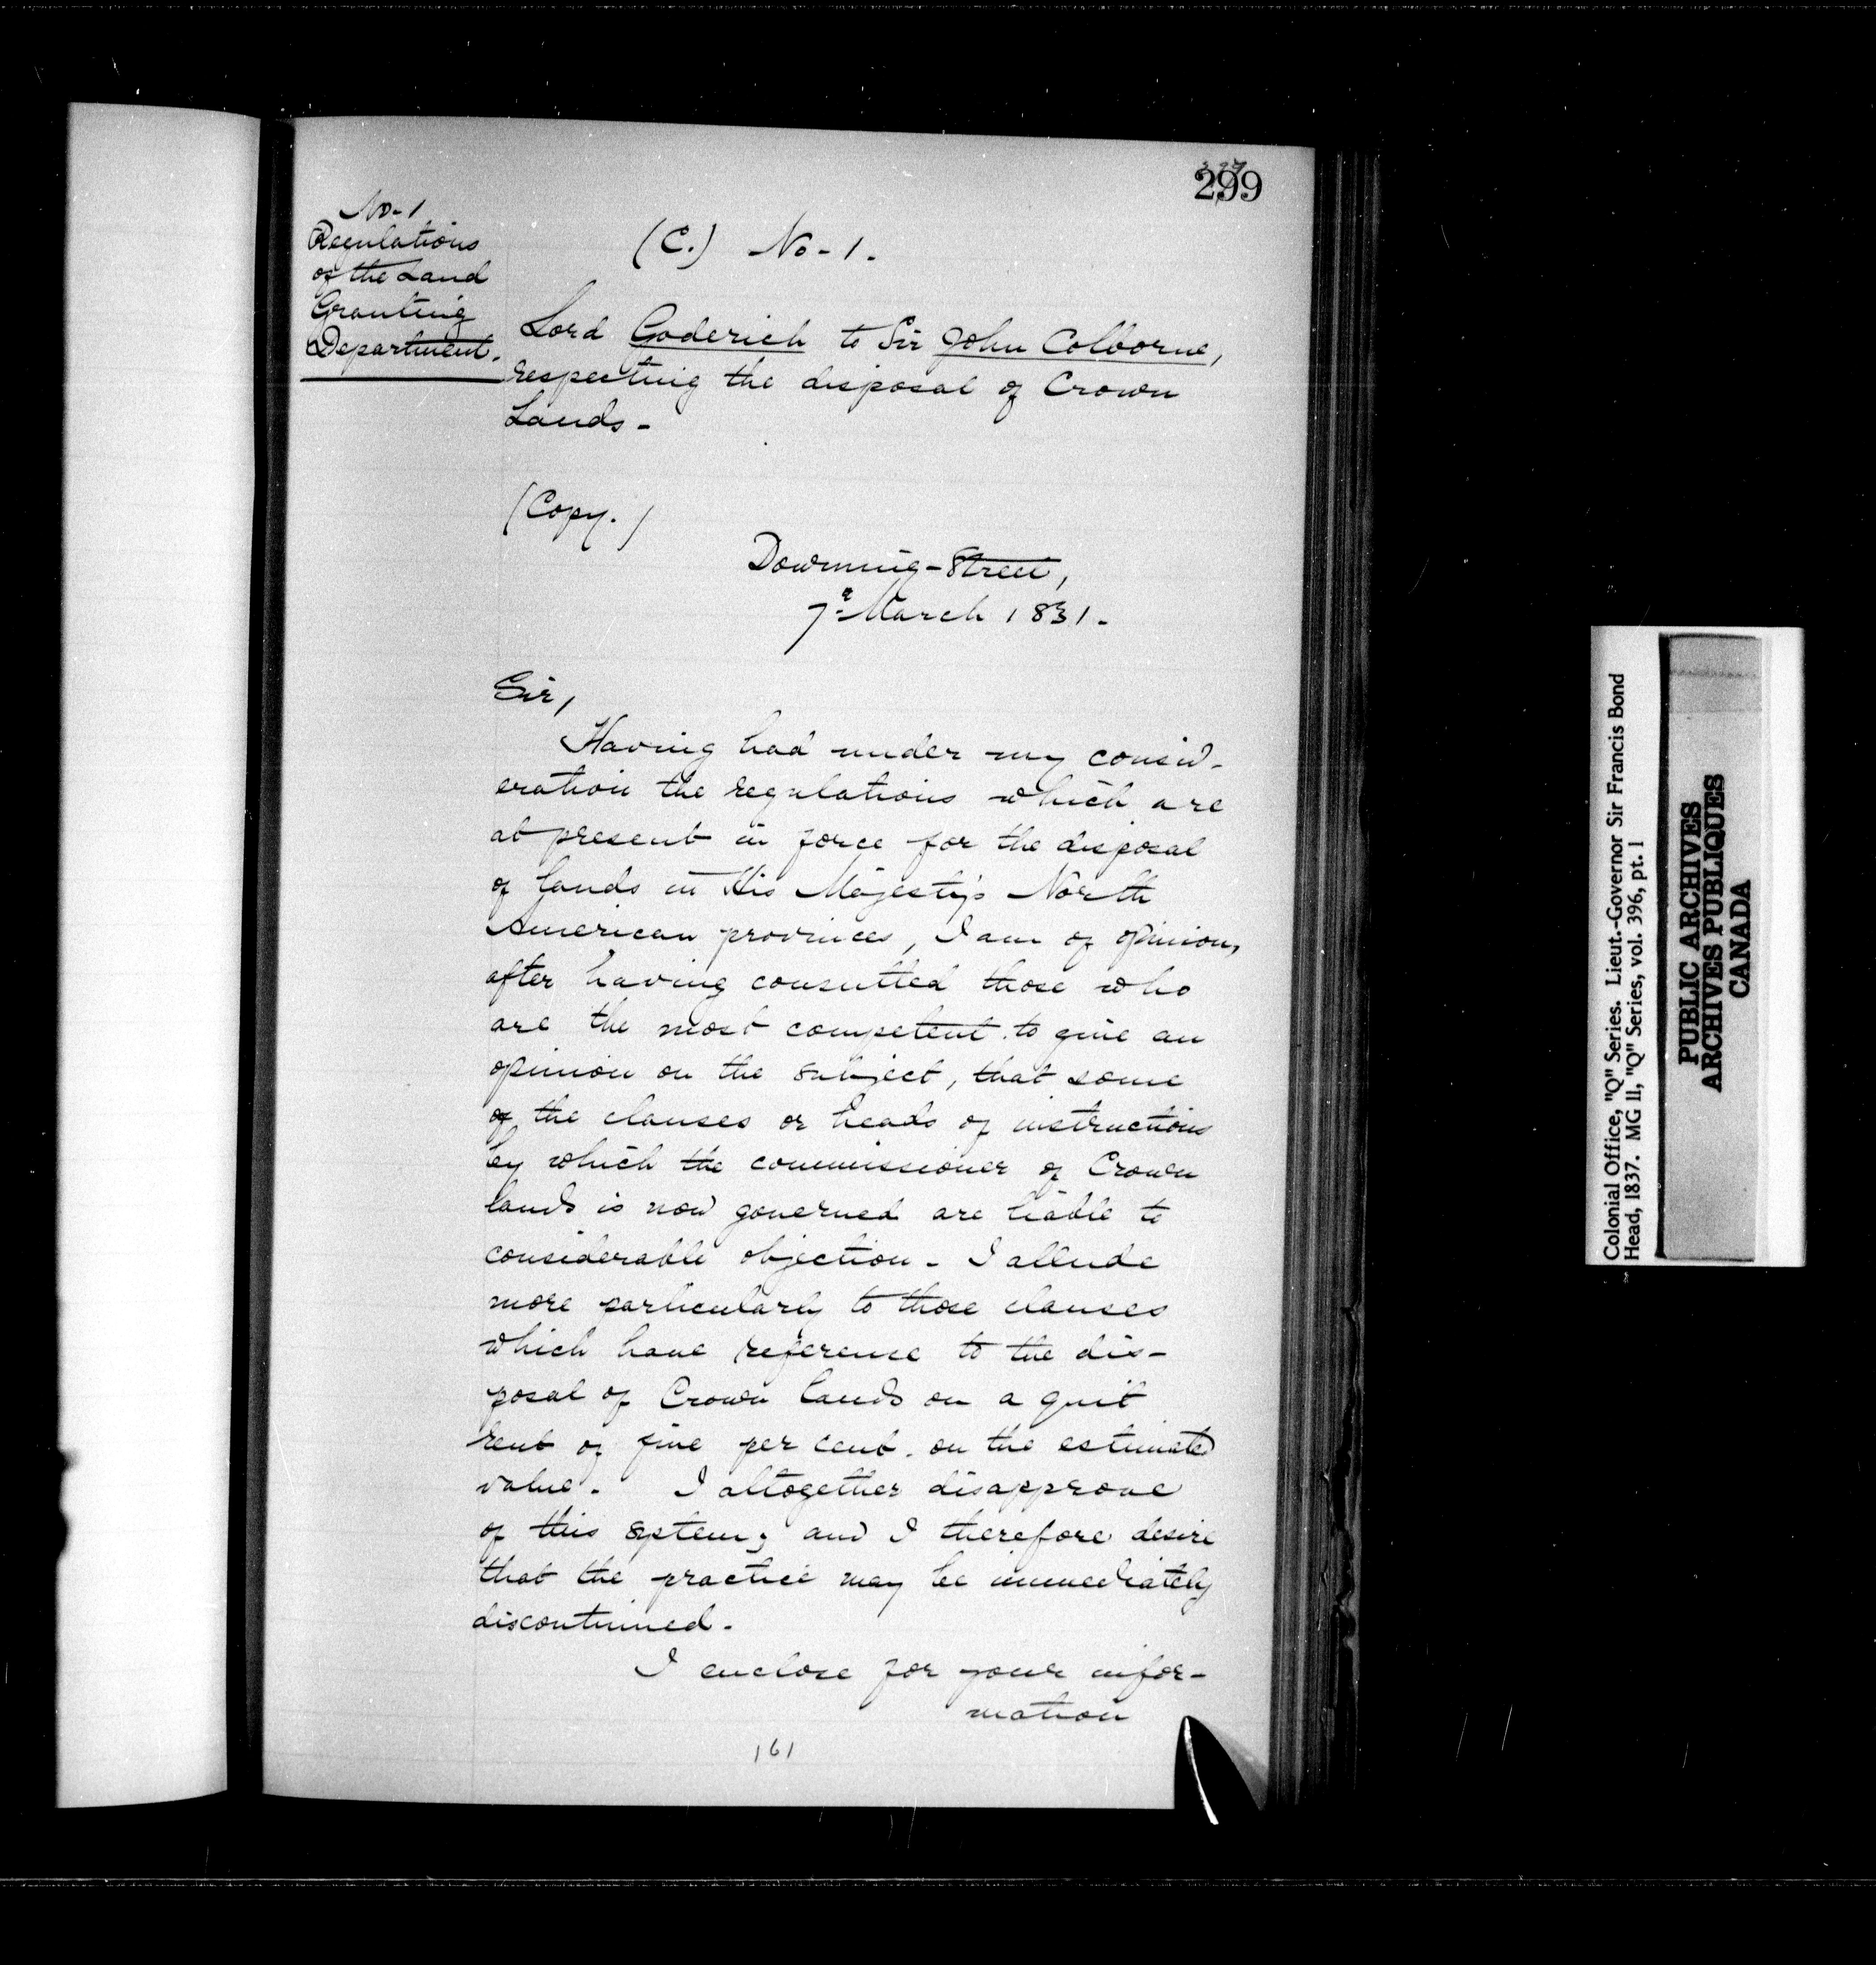 299
No-1
Regulations
of the Land
Granting
Department.
(C.) No-1.
Lord Goderich to Sir John Colborne,
respecting the disposal of Crown
Lands-
(Copy.)
Downing-Street,
7th March 1831.
Sir,
Having had under my consid-
eration the regulations which are
at present in force for the disposal
of lands in His Majesty's North
American provinces, I am of opinion,
after having consulted those who
are the most competent to give an
opinion on the subject, that some
of the clauses or heads of instructions
by which the commissioner of Crown
lands is now governed are liable to
considerable objection. I allude
more particularly to those clauses
which have reference to the dis-
posal of Crown lands on a quit
rent of five per cent. on the estimated
value. I altogether disapprove
of this system; and I therefore desire
that the practice may be immediately
discontinued.
I enclose for your infor-
mation
161
Colonial Office, "Q" Series. Lieut.-Governor Sir Francis Bond
Head, 1837. MG 11, "Q" Series, vol. 396, pt. 1
PUBLIC ARCHIVES
ARCHIVES PUBLIQUES
CANADA